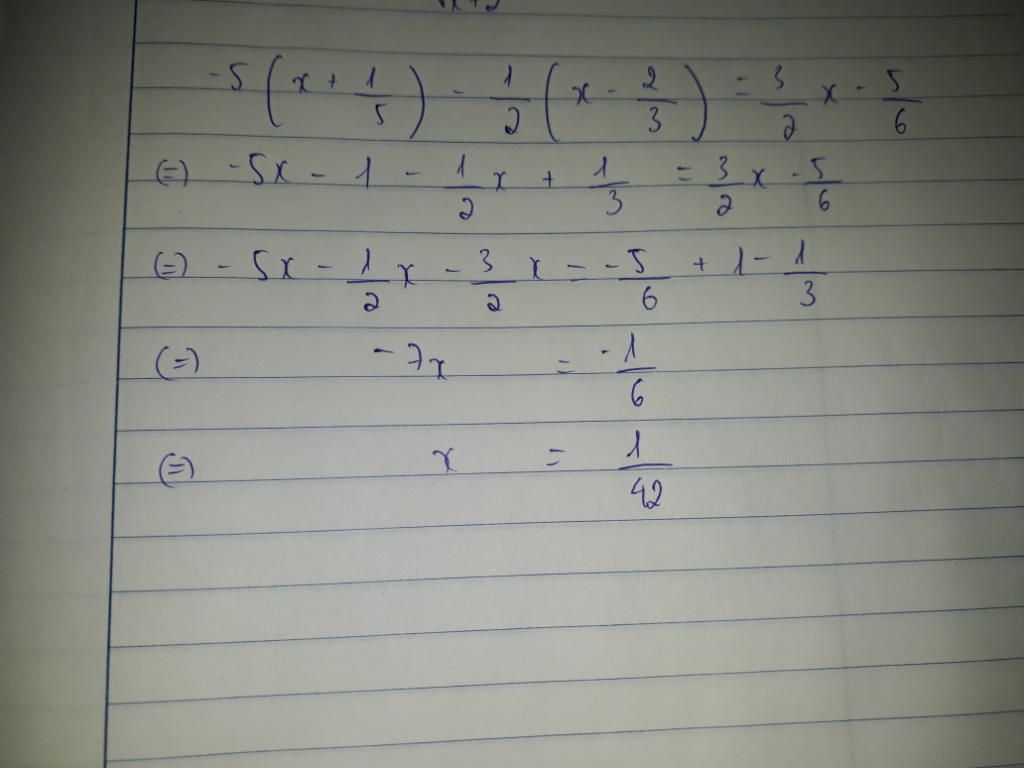 -5(x + 1/5) - 1/2(x - 2/3) = 3/2 x - 5/6
(=) -5x - 1 - 1/2 x + 1/3 = 3/2 x - 5/6
(=) -5x - 1/2 x - 3/2 x = -5/6 + 1 - 1/3
(=) -7x = -1/6
(=) x = 1/42